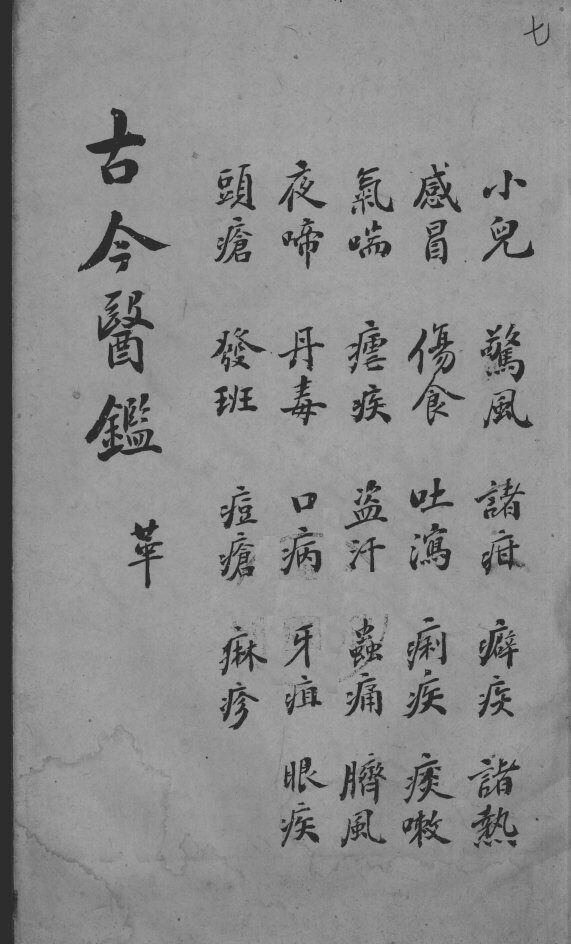 七
小兒 驚風 諸疳 癖疾 諸熱
感冒 傷食 吐瀉 痢疾 痰嗽
氣喘 瘧疾 盜汗 蟲痛 臍風
夜啼 丹毒 口病 牙疽 眼疾
頭瘡 發班 痘瘡 痲疹
古今醫鑑
革